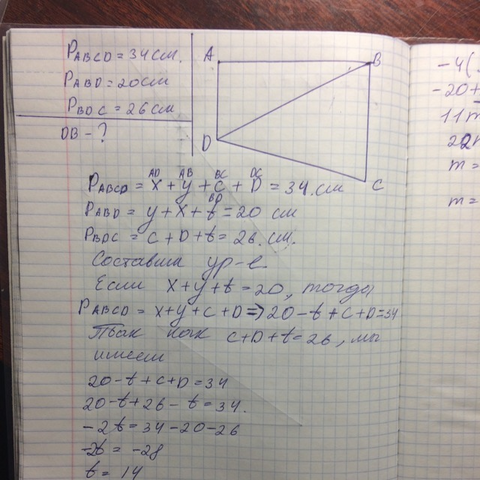 P_ABCD = 34 см.
P_ABD = 20 см
P_BDC = 26 см
DB - ?
A
B
D
C
AD AB BC DC
P_ABCD = x + y + c + D = 34. см
BD
P_ABD = y + x + t = 20 см
P_BDC = c + D + t = 26. см.
Составим ур-е
Если x + y + t = 20, тогда
P_ABCD = x + y + c + D => 20 - t + c + D = 34
Так как c + D + t = 26, мы
имеем
20 - t + c + D = 34
20 - t + 26 - t = 34.
-2t = 34 - 20 - 26
-2t = -28
t = 14
-4(
-20+
11m
22m
m =
m =